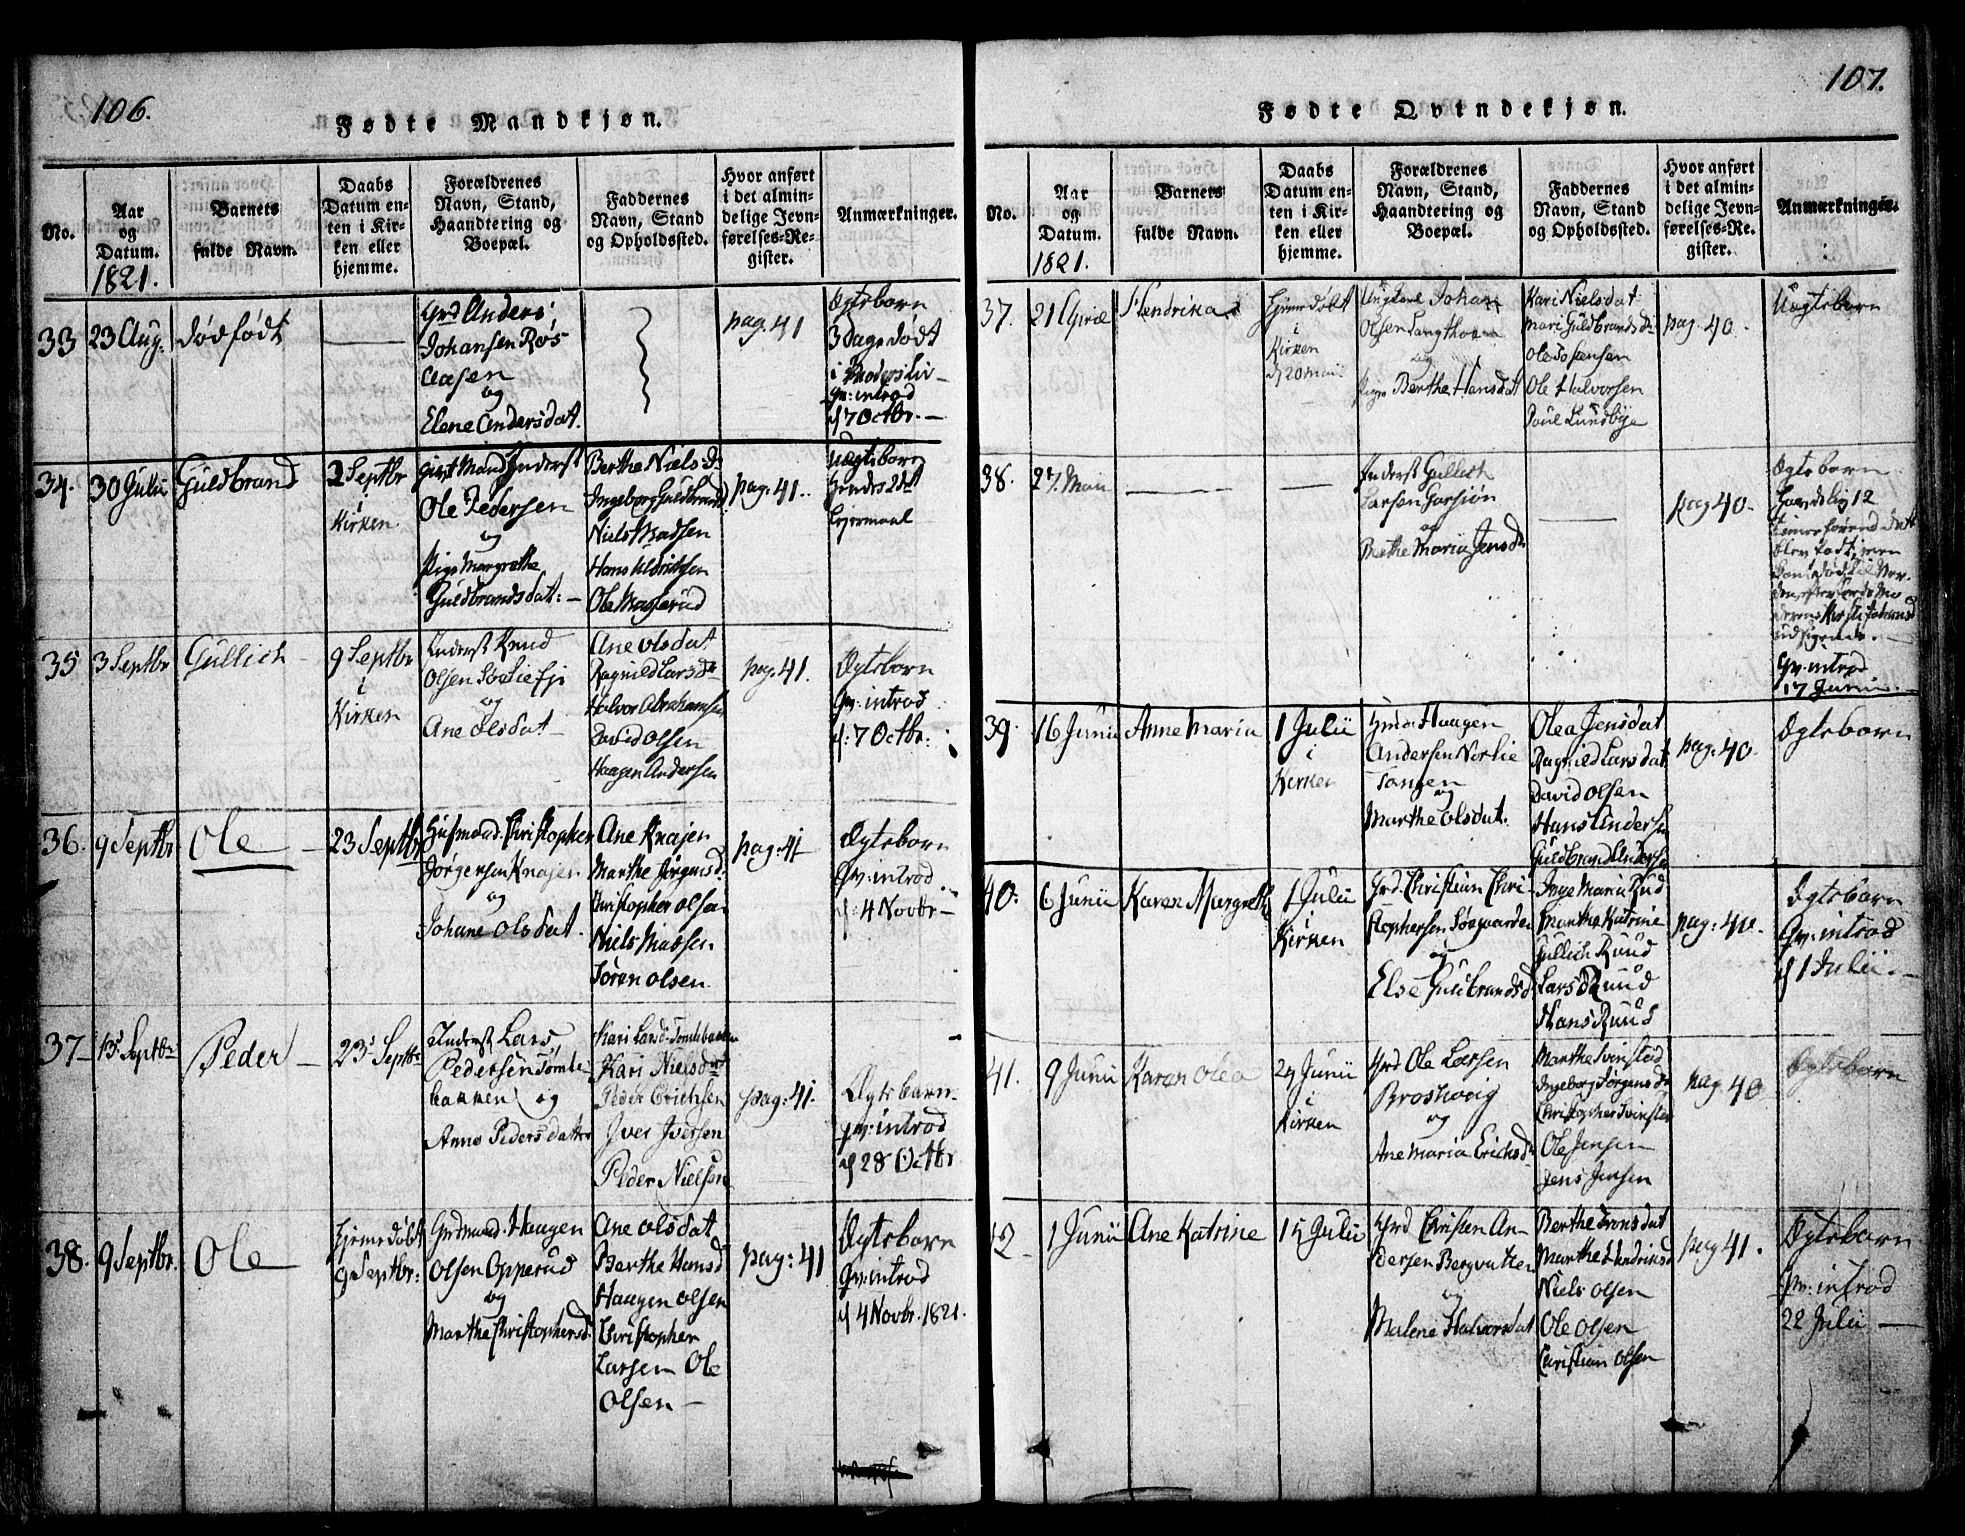 106.
Fødte Mandkjøn.
No.
Aar
og
Datum.
1821.
Barnets
fulde Navn.
Daabs
Datum en-
ten i Kir-
ken eller
hjemme.
Forældrenes
Navn, Stand,
Haandtering og
Boepæl.
Faddernes
Navn, Stand
og Opholdssted.
Hvor anført
i det almin-
delige Jevn-
førelses-Re-
gister.
Anmærkninger.
33
23 Aug.
dødfødt
Grd Anders
Johansen Røs
Aasen
og
Elene Andersdat.
pag. 41
Ægtebarn
3 Dage dødt
i Moders liv
Qv: introd
d 7 Octbr.
34.
30 Julii
Guldbrand
2 Septbr
i
Kirken
givt Mand Inderst
Ole Pedersen
og
Pige Margrethe
Guldbrandsdat:
Berthe Niels D:
Ingeborg Guldbrands
Niels Madsen
Hans Ulrichsen
Ole Magerud
pag. 41.
Uægtebarn
hendes 2det
Leiermaal
35
3 Septbr
Gullich
9 Septbr
i
Kirken
Inderst Knud
Olsen
og
Ane Olsdat
Ane Olsdat
Ragnild Larsdr
Halvor Abrahamsen
David Olsen
Haagen Andersen
pag. 41.
Ægtebarn
Qv: introd
d: 7 Octbr:
36.
9 Septbr
Ole
23 Septbr
Huusmand Christopher
Jørgensen Knajen
og
Johane Olsdat.
Ane Knajen
Marthe Jørgensd.
Christopher Olsen
Niels Massen
Søren Olsen
pag: 41
Ægtebarn
Qv: introd.
d: 4 Novbr
37
13 Septbr
Peder
23 Septbr
Inderst Lars
Pedersen Tømte-
bakken og
Anne Pedersdatter
Kari Larsd. Tomtebakken
Kari Nielsdr
Peder Erichsen
Iver Iversen
Peder Nielsen
pag: 41.
Ægtebarn.
Qv: introd
d 28 Octbr
38.
9 Septbr.
Ole
Hjemedøbt
9 Septbr:
Grdmand Haagen
Olsen Opperud
og
Marthe Christophersd.
Ane Olsdat
Berthe Hansd
Haagen Olsen
Christopher
Larsen Ole
Olsen
pag: 41
Ægtebarn
Qv: introd
d 4 Novbr. 1821.
107.
Fødte Qvindekjøn.
No.
Aar
og
Datum.
1821.
Barnets
fulde Navn.
Daabs
Datum en-
ten i Kir-
ken eller
hjemme.
Forældrenes
Navn, Stand,
Haandtering og
Boepæl.
Faddernes
Navn, Stand
og Opholdssted.
Hvor anført
i det almin-
delige Jevn-
førelses-Re-
gister.
Anmærkninger.
37.
21 April
Hendrika
Hjemedøbt
i
Kirken
d 20 Mai
Ungkarl Johan
Olsen
og
Pige Berthe Hansdat
Kari Nielsdat
Mari Guldbrandsd:
Ole
Ole Halvorsen
Poul Lundbye
pag. 40.
Uægtebarn
38.
27. Mai
Inderst Gullich
Larsen Garsiøn
og
Berthe Maria Jensd.
pag 40.
Ægtebarn
12
Timer førend det
blev født, men
Qv: introd
17 Junii.
39.
16 Junii
Anne Maria
1 Julii
i
Kirken
Haagen
Andersen Norlie
Tangen
og
Marthe Olsdat.
Olea Jensdat
Ragnild Larsdat
David Olsen
Hans Andersen
Guldbrand Andersen
pag. 40.
Ægtebarn
40.
6 Junii
Karen Margrethe
1 Julii
i
Kirken
Grd. Christian Chri-
stophersen Søegaarden
og
Else Guldbrandsd.
Inge Maria Rud
Marthe Katrine
Gullich Ruud
Lars Ruud
Hans Ruud
pag: 40.
Ægtebarn
Qv: introd
d 1 Julii.
41.
9 Junii
Karen Olea
24 Junii
i
Kirken
Grd Ole Larsen
Broshoug
og
Ane Maria Erichsd.
Marthe Svinstad
Ingeborg Jørgensd.
Christopher Svinstad
Ole Jensen
Jens Jensen
pag 40
Ægtebarn
42
1 Junii
Ane Katrine
15 Julii
Grd Christen An-
dersen Bergvatten
og
Malene Halvorsdat
Berthe Tronsdat
Marthe Hendriksd
Niels Olsen
Ole Olsen
Christian Olsen
pag 41.
Ægtebarn
Qv: introd
22 Julii